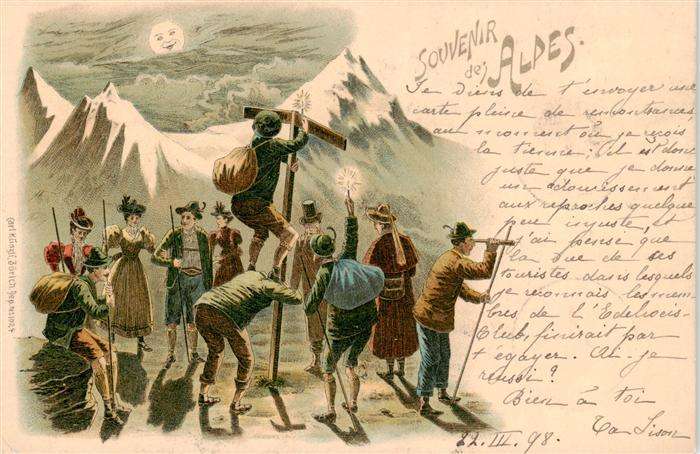 SOUVENIR
des ALPES.
Je viens de t'envoyer une
carte pleine de remontrances
au moment où je reçois
la tienne; il est donc
juste que je donne
un adoucissement
aux reproches quelque
peu injuste, et
j'ai pensé que
la vue de ses
touristes dans lesquels
je reconnais les mem-
bres de l'Edelweis-
Club, finirait par
t'egayer. Ai-je
réussi?
Bien à toi
Ta Lison
22. III. 98.
Carl Künzli, Zürich, Dep. No. 1027